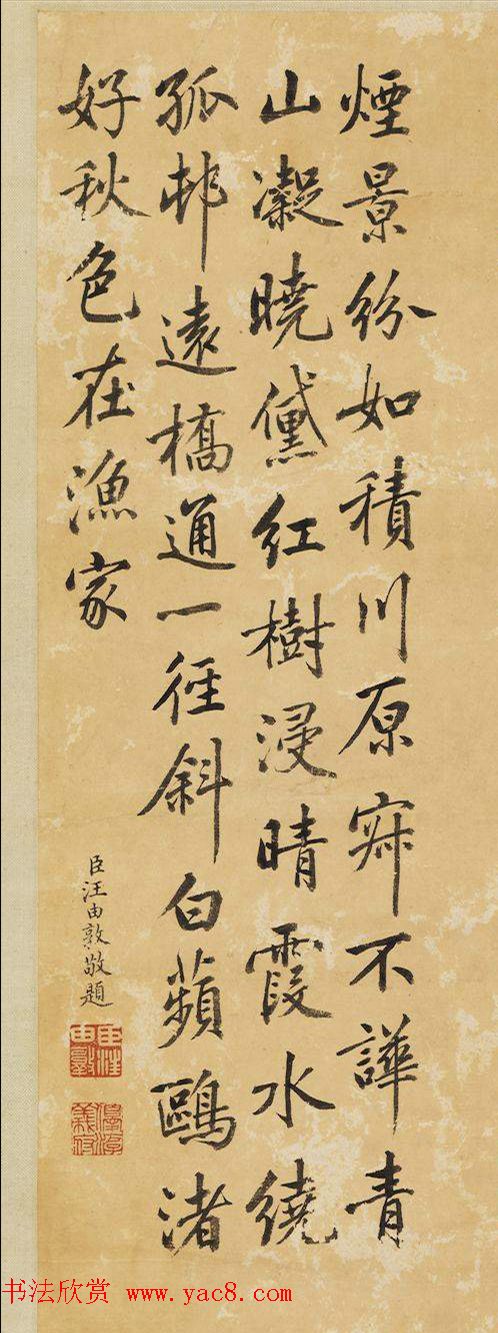 煙景紛如積川原寂不譁青
山凝曉黛紅樹浸晴霞水繞
孤邨遠橋通一徑斜白蘋鷗渚
好秋色在漁家
臣汪由敦敬題
書法欣赏 www.yac8.com